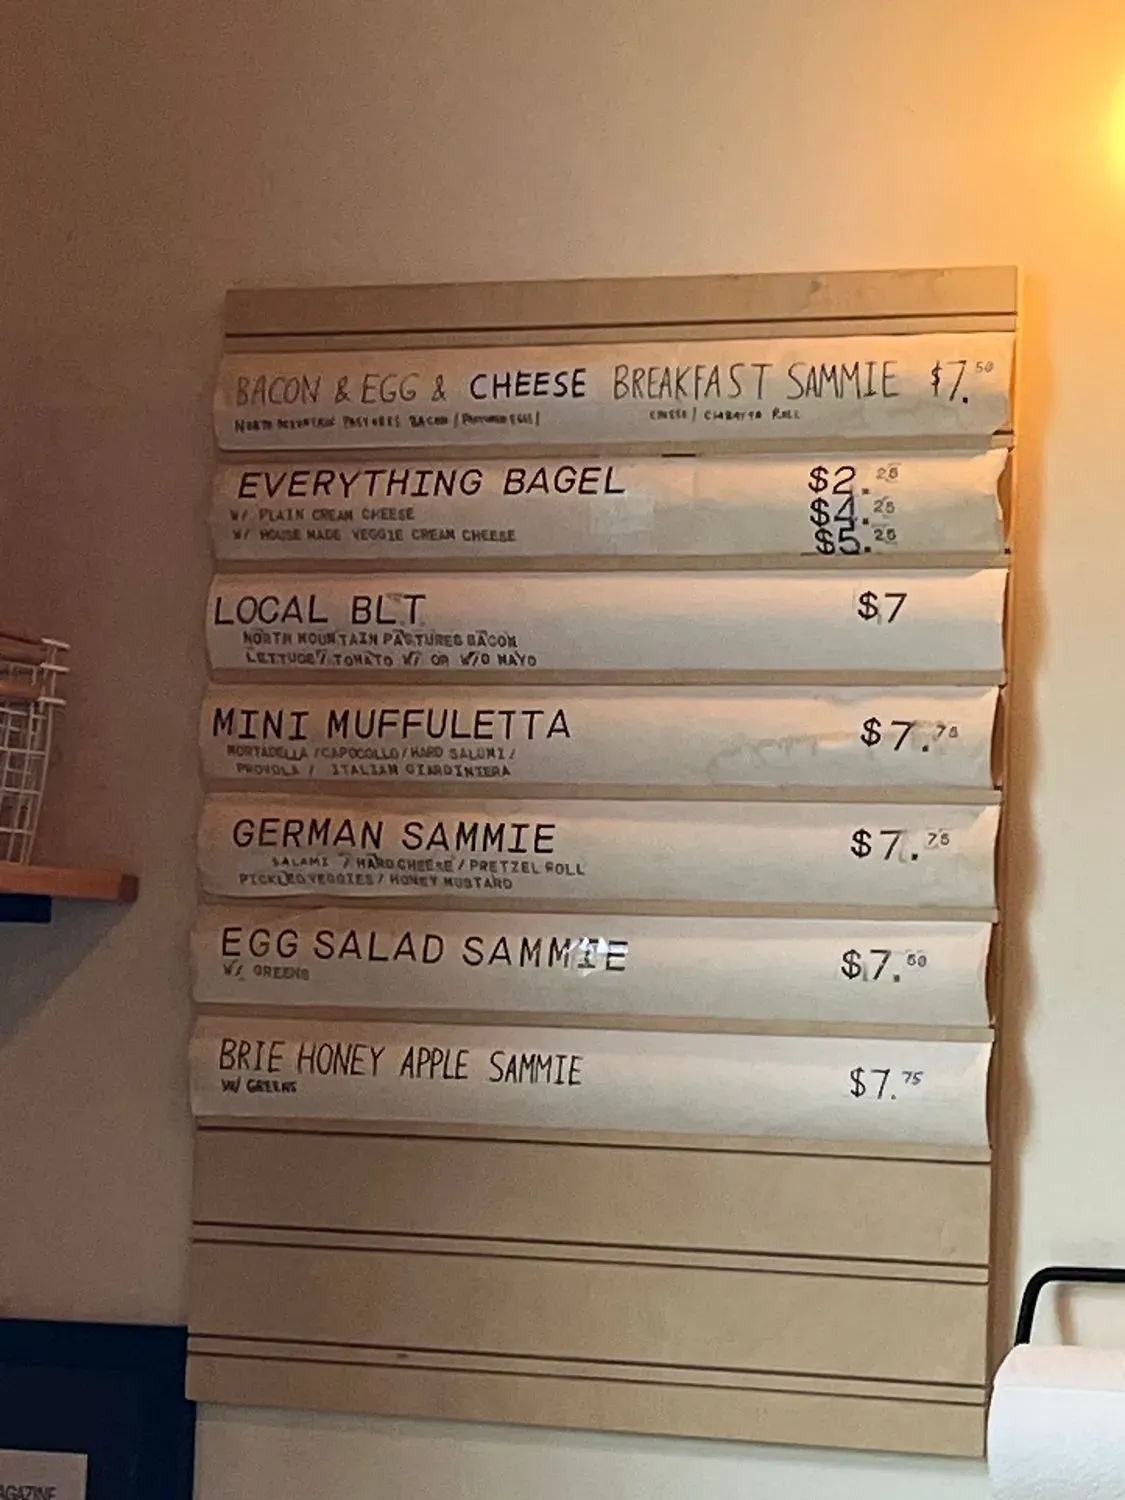 BACON & EGG & CHEESE BREAKFAST SAMMIE $7.50
NORTH MOUNTAIN PASTURES BACON / PASTURED EGGS / CHEESE / CIABATTA ROLL
EVERYTHING BAGEL $2.25
W/ PLAIN CREAM CHEESE $4.25
W/ HOUSE MADE VEGGIE CREAM CHEESE $5.25
LOCAL BLT $7
NORTH MOUNTAIN PASTURES BACON
LETTUCE / TOMATO W/ OR W/O MAYO
MINI MUFFULETTA $7.75
MORTADELLA / CAPOCOLLO / HARD SALUMI /
PROVOLA / ITALIAN GIARDINIERA
GERMAN SAMMIE $7.75
SALAMI / HARD CHEESE / PRETZEL ROLL
PICKLED VEGGIES / HONEY MUSTARD
EGG SALAD SAMMIE $7.50
W/ GREENS
BRIE HONEY APPLE SAMMIE $7.75
W/ GREENS
AGAZINE